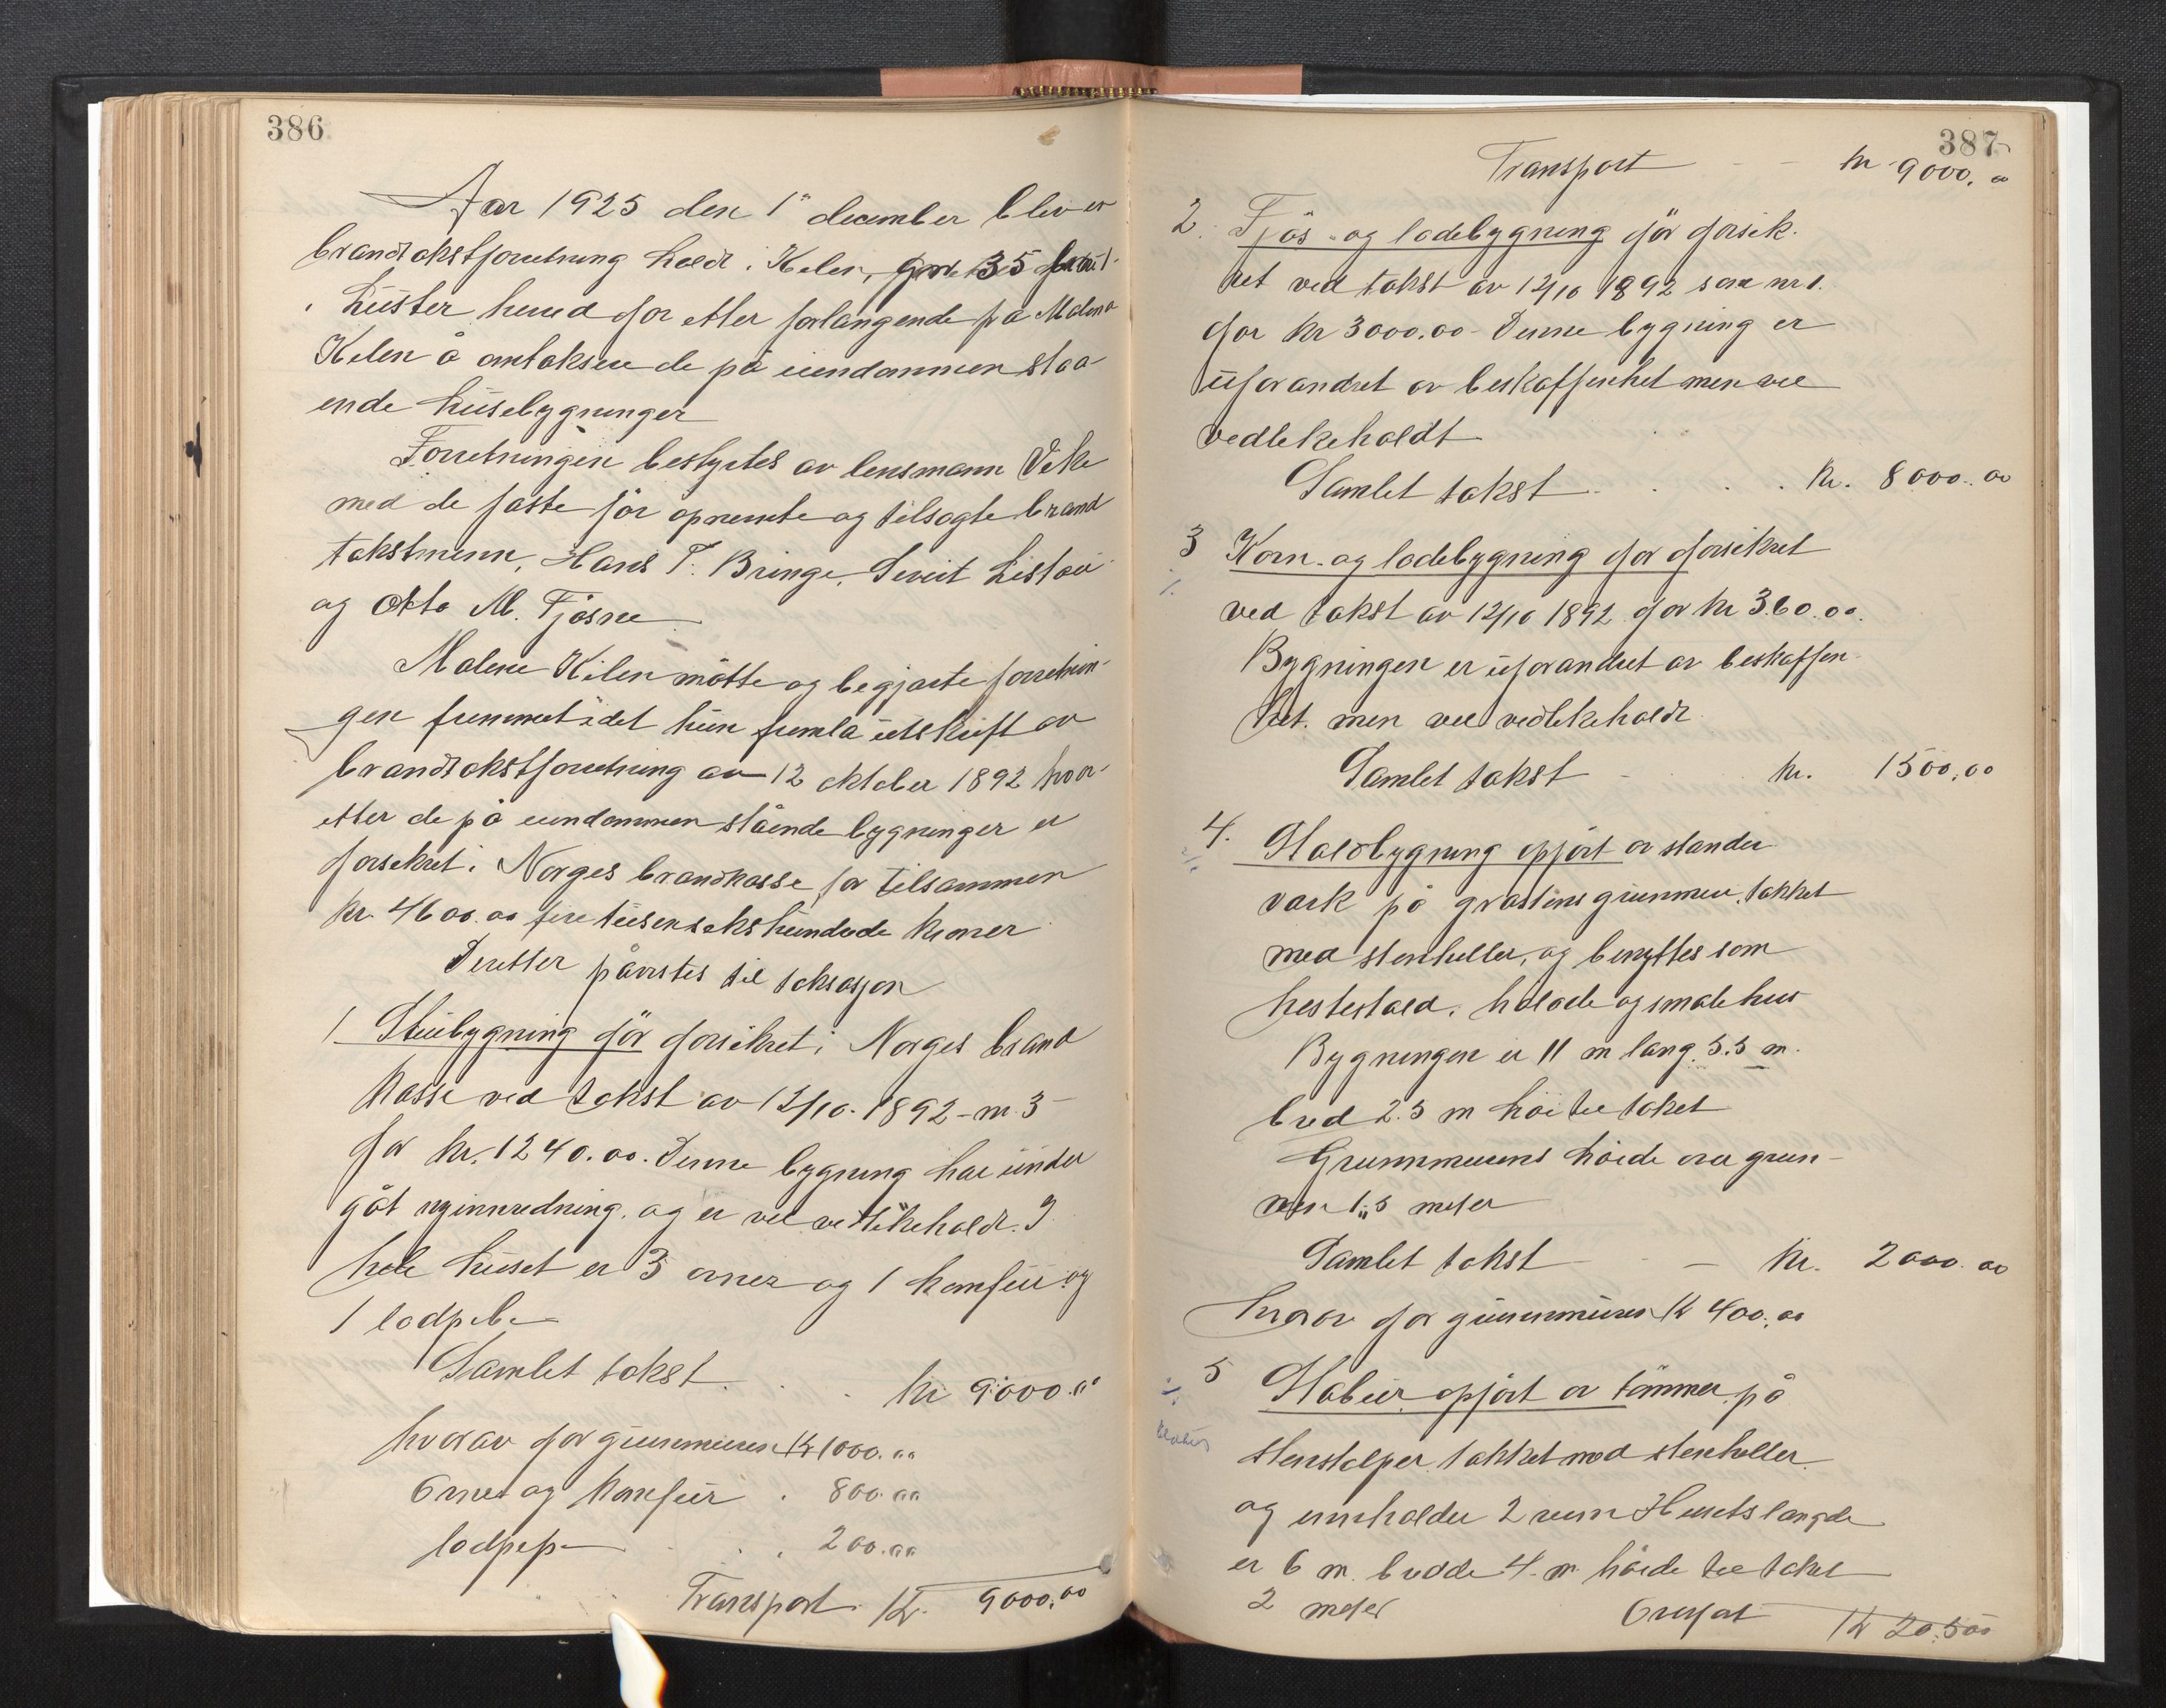 386
Aar 1925 den 1" december blev er
brandtakstforretning holdt i Kilen, gnr 35
i Luster herred for etter forlangende fra Malene
Kilen å omtaksere de på eiendommen staa
ende husebygninger
Forretningen bestyrtes av lensmann
med de faste før opnevnte og tilsagte brand
takstmenn, Hans T. Bringe, Sivert
og Otto M. Fjøsne
Malene Kilen møtte og begjærte forretnin-
gen fremmet idet hun fremla utskrift av
brandtakstforretning av 12 oktober 1892 hvor-
etter de på eiendommen stående bygninger er
forsikret i Norges brandkasse for tilsammen
kr. 4600.00 fire tusen seks hundrede kroner
Deretter påvistes til taksasjon
1 Stuebygning før forsikret i Norges brand
kasse ved takst av 12/10. 1892 - nr. 3
for kr. 1240.00. Denne bygning har under
gåt nyinnredning, og er vel vedlikeholdt. I
hele huset er 3 ovner og 1 komfur og
1 lodpibe
Samlet takst . . . kr 9000.00
hvorav for grunnmuren kr 1000.00
Ovner og komfur . 800.00
lodpipe . . . 200.00
Transport. kr. 9000.00
387
Transport - - kr 9000.00
2. Fjøs- og ladebygning før forsik-
ret ved takst av 12/10 1892 som nr 1.
for kr 3000.00 - Denne bygning er
uforandret av beskaffenhet men vel
vedlikeholdt
Samlet takst . . . . kr. 8000.00
3 Korn- og ladebygning før forsikret
ved takst av 12/10 1892 for kr 360.00.
Bygningen er uforandret av beskaffen-
het. men vel vedlikeholdt
Samlet takst - . . kr. 1500.00
4. Staldbygning opført av stander
værk på gråstens grunnmur, tækket
med stenheller, og benyttes som
hestestald, hølade og smalehus
Bygningen er 11 m lang. 5.5 m.
bred 2.5 m høi til taket
Grunnmurens høide over grun-
nen 1,5 meter
Samlet takst - - kr. 2000.00
hvorav for grunnmuren kr 400.00
5 Stabur opført av tømmer på
stenstolper tækket med stenheller
og inneholder 2 rum Husets længde
er 6 m. bredde 4. m. høide til taket
2 meter Overført kr 20.500